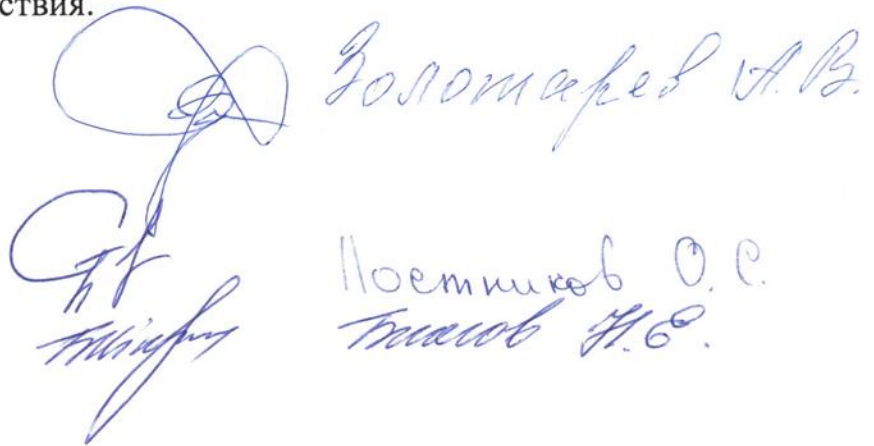 ствия.
Золотарев А. В.
Постников О. С.
Н. Е.